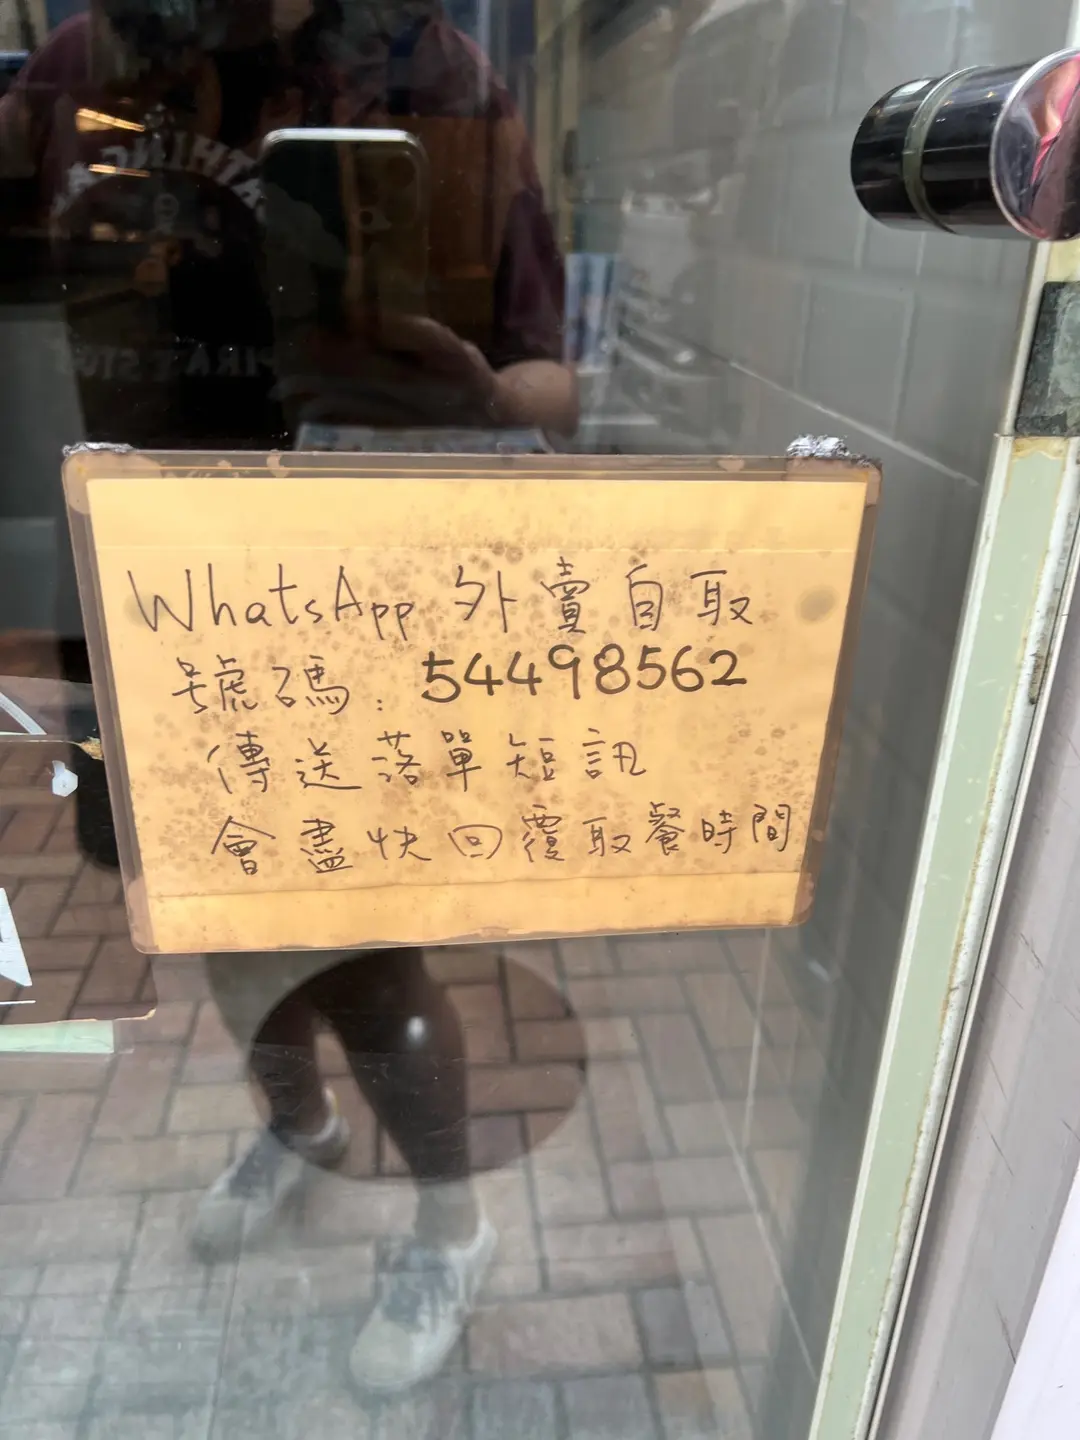 WhatsApp 外賣自取
號碼：54498562
傳送落單短訊
會盡快回覆取餐時間